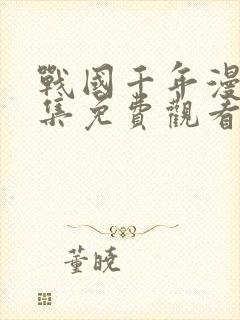 戰國千年漫
集免費觀看
董曉